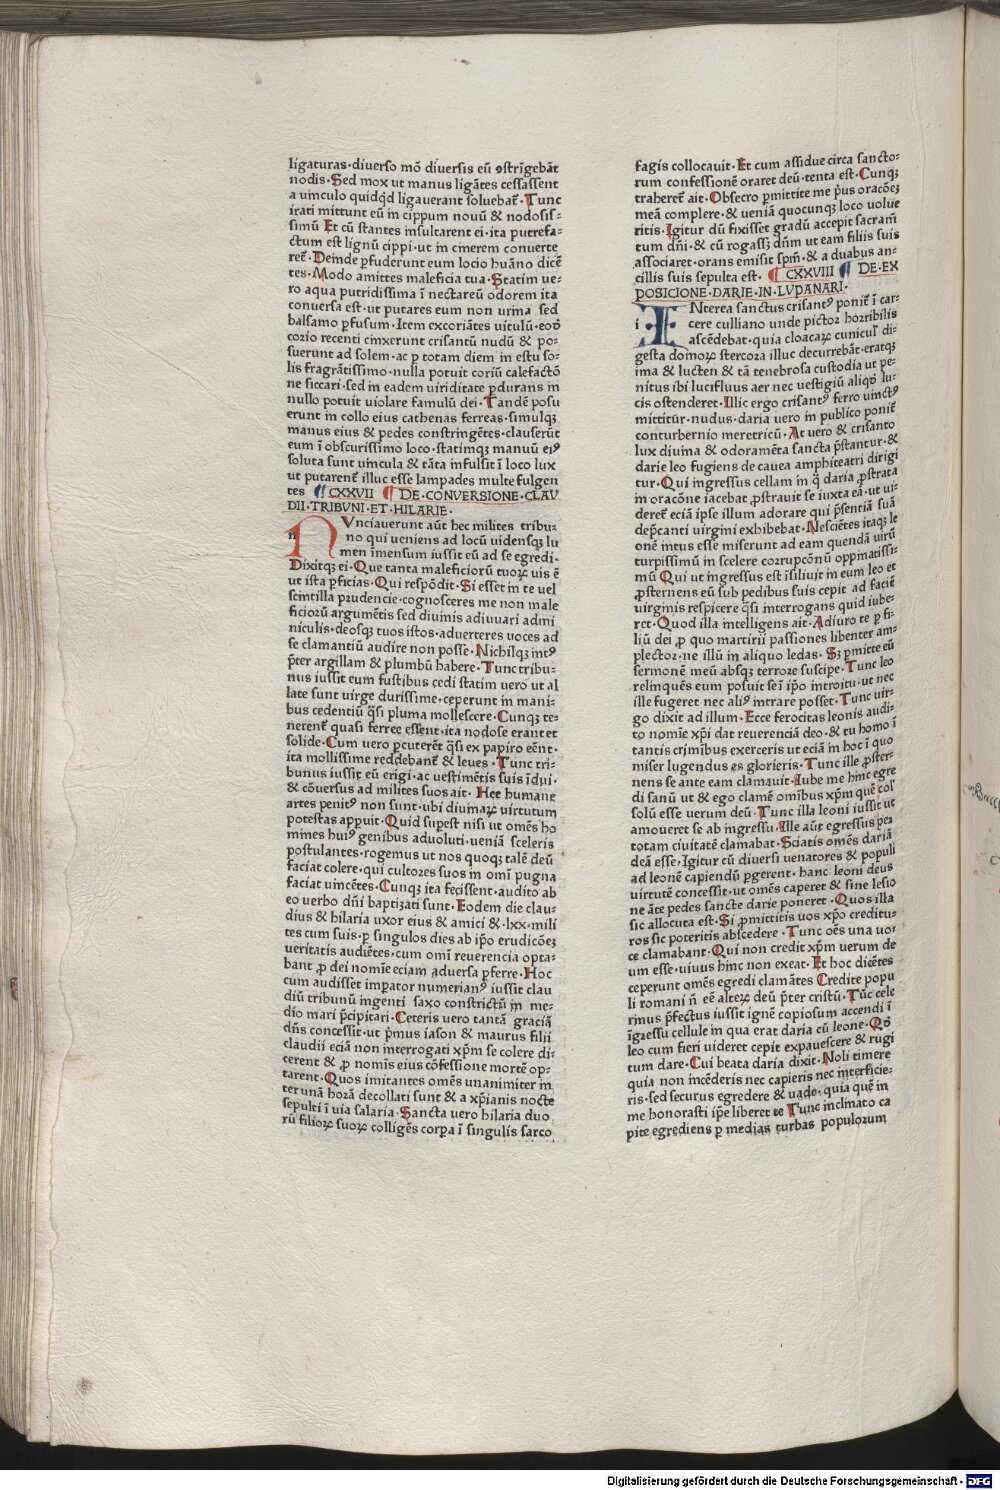 ligaturas·diuerso mō diuersis eū ꝯstrīgebāt
nodis·Sed mox ut manus ligātes cessassent
a uinculo quidqd ligauerant soluebat᷑·Tunc
irati mittunt eū in cippum nouū & nodosis⸗
simū Et cū stantes insultarent ei·ita putrefa⸗
ctum est lignū cippi·ut in cinerem conuerte
ret᷑·Deinde ꝑfuderunt eum locio huāno dicē
tes·Modo amittes maleficia tua·Statim ue⸗
ro aqua putridissima ī nectareū odorem ita
conuersa est·ut putares eum non urina sed
balsamo ꝑfusum·Item excoriātes uitulū·eoꝺ
corio recenti cinxerunt crisantū nudū & po⸗
suerunt ad solem·ac ꝑ totam diem in estu so⸗
lis fragrātissimo·nulla potuit coriū calefactō
ne siccari·sed in eadem uiriditate ꝑdurans in
nullo potuit uiolare famulū dei·Tandē posu
erunt in collo eius cathenas ferreas·simulqꝫ
manus eius & pedes constringētes·clauserūt
eum ī obscurissimo loco·statimqꝫ manuū eiꝰ
soluta sunt uincula & tāta infulsit ī loco lux
ut putarent᷑ illuc esse lampades multe fulgen
tes ¶ CXXVII ¶ DE·CONVERSIONE·CLAV
DII·TRIBVNI·ET·HILARIE·
n NVnciauerunt aūt hec milites tribu⸗
no qui ueniens ad locū uidensqꝫ lu
men īmensum iussit eū ad se egredi·
Dixitqꝫ ei·Que tanta maleficiorū tuoꝝ uis ē
ut ista ꝑficias·Qui respōdit·Si esset in te uel
scintilla prudencie·cognosceres me non male
ficiorū argumētis sed diuinis adiuuari admi
niculis·deosqꝫ tuos istos·aduerteres uoces ad
se clamantiū audire non posse·Nichilqꝫ intꝰ
p̄ter argillam & plumbū habere·Tunc tribu⸗
nus iussit eum fustibus cedi statim uero ut al
late sunt uirge durissime·ceperunt in mani⸗
bus cedentiū q̄si pluma mollescere·Cunqꝫ te⸗
nerent᷑ quasi ferree essent·ita nodose erant et
solide·Cum uero ꝑcuterēt q̄si ex papiro eēnt·
ita mollissime reddebant᷑ & leues·Tunc tri⸗
bunus iussit eū erigi·ac uestimētis suis īdui·
& cōuersus ad milites suos ait·Hec humane
artes penitꝰ non sunt·ubi diuinaꝝ uirtutum
potestas appuit·Quid supest nisi ut omēs ho
mines huiꝰ genibus aduoluti·ueniā sceleris
postulantes·rogemus ut nos quoqꝫ talē deū
faciat colere·qui cultores suos in omī pugna
faciat uincētes·Cunqꝫ ita fecissent·audito ab
eo uerbo dn̄i baptizati sunt·Eodem die clau⸗
dius & hilaria uxor eius & amici &·lxx·mili
tes cum suis·ꝑ singulos dies ab ip̄o erudicōeꝫ
ueritatis audiētes·cum omī reuerencia opta⸗
bant ꝓ dei nomīe eciam aduersa ꝑferre·Hoc
cum audisset imꝑator numerianꝰ iussit clau
diū tribunū ingenti saxo constrictū in me⸗
dio mari p̄cipitari·Ceteris uero tantā graciā
dn̄s concessit·ut p̄mus iason & maurus filii
claudii eciā non interrogati xp̄m se colere di⸗
cerent & ꝓ nomīs eius cōfessione mortē op⸗
tarent·Quos imitantes omēs unanimiter in
ter unā horā decollati sunt & a xp̄ianis nocte
sepulti ī uia salaria·Sancta uero hilaria duo
rū filioꝝ suoꝝ colligēs corꝑa ī singulis sarco
fagis collocauit·Et cum assidue circa sancto⸗
rum confessionē oraret deū·tenta est·Cunqꝫ
traheret᷑ ait·Obsecro ꝑmittite me p̄us oracōeꝫ
meā complere·& ueniā quocunqꝫ loco uolue
ritis·Igitur dū fixisset gradū accepit sacram̄
tum dn̄i·& cū rogassꝫ dn̄m ut eam filiis suis
associaret·orans emisit spm̄·& a duabus an⸗
cillis suis sepulta est· ¶ CXXVIII ¶ DE·EX
POSICIONE·DARIE·IN·LVPANARI·
i INterea sanctus crisantꝰ ponit᷑ ī car⸗
cere culliano unde pictor horribilis
ascēdebat·quia cloacaꝝ cuniculꝭ di⸗
gesta domoꝝ stercora illuc decurrebāt·eratqꝫ
ima & lucten & tā tenebrosa custodia ut pe⸗
nitus ibi lucifluus aer nec uestigiū aliqꝺ lu⸗
cis ostenderet·Illic ergo crisantꝰ ferro uinctꝰ
mittitūr·nudus·daria uero in publico ponit᷑
conturbernio meretricū·At uero & crisanto
lux diuina & odoramēta sancta p̄stantur·&
darie leo fugiens de cauea amphiteatri dirigi
tur·Qui ingressus cellam in q̄ daria ꝓstrata
in oracōne iacebat·ꝓstrauit se iuxta eā·ut ui⸗
deret᷑ eciā ipse illum adorare qui p̄sentiā suā
dep̄canti uirgini exhibebat·Nesciētes itaqꝫ le
onē intus esse miserunt ad eam quendā uirū
turpissimū in scelere corrupcōnū oppinatissi⸗
mū Qui ut ingressus est īsiliuit in eum leo et
ꝓsternens eū sub pedibus suis cepit ad faciē
uirginis respicere q̄si interrogans quid iube⸗
ret·Quod illa intelligens ait·Adiuro te ꝑ fi⸗
liū dei ꝓ quo martirii passiones libenter am⸗
plector·ne illū in aliquo ledas·Sꝫ ꝑmitte eū
sermonē meū absqꝫ terrore suscipe·Tunc leo
relinquēs eum posuit se ī ip̄o introitu·ut nec
ille fugeret nec aliꝰ intrare posset·Tunc uir⸗
go dixit ad illum·Ecce ferocitas leonis audi⸗
to nomīe xp̄i dat reuerenciā deo·& tu homo ī
tantis criminibus exerceris ut eciā in hoc ī quo
miser lugendus es glorieris·Tunc ille ꝓster⸗
nens se ante eam clamauit·Iube me hinc egre
di sanū ut & ego clamē omībus xp̄m quē colꝭ
solū esse uerum deū·Tunc illa leoni iussit ut
amoueret se ab ingressu·Ille aūt egressus per
totam ciuitatē clamabat·Sciatis omēs dariā
deā esse·Igitur cū diuersi uenatores & populi
ad leonē capiendū ꝑgerent·hanc leoni deus
uirtutē concessit·ut omēs caperet & sine lesio
ne āte pedes sancte darie poneret·Quos illa
sic allocuta est·Si ꝑmittitis uos xp̄o creditu⸗
ros sic poteritis abscedere·Tunc oēs una uo⸗
ce clamabant·Qui non credit xp̄m uerum de
um esse·uiuus hinc non exeat·Et hoc dicētes
ceperunt omēs egredi clamātes Credite popu
li romani n̄ eē alteꝝ deū p̄ter cristū·Tūc cele
rinus p̄fectus iussit ignē copiosum accendi ī
īgressu cellule in qua erat daria cū leone·Qꝺ
leo cum fieri uideret cepit expauescere & rugi
tum dare·Cui beata daria dixit·Noli timere
quia non incēderis nec capieris nec interficie⸗
ris·sed securus egredere & uade·quia quē in
me honorasti ip̄e liberet te Tunc inclinato ca
pite egrediens ꝑ medias turbas populorum
Digitalisierung gefördert durch die Deutsche Forschungsgemeinschaft · DFG